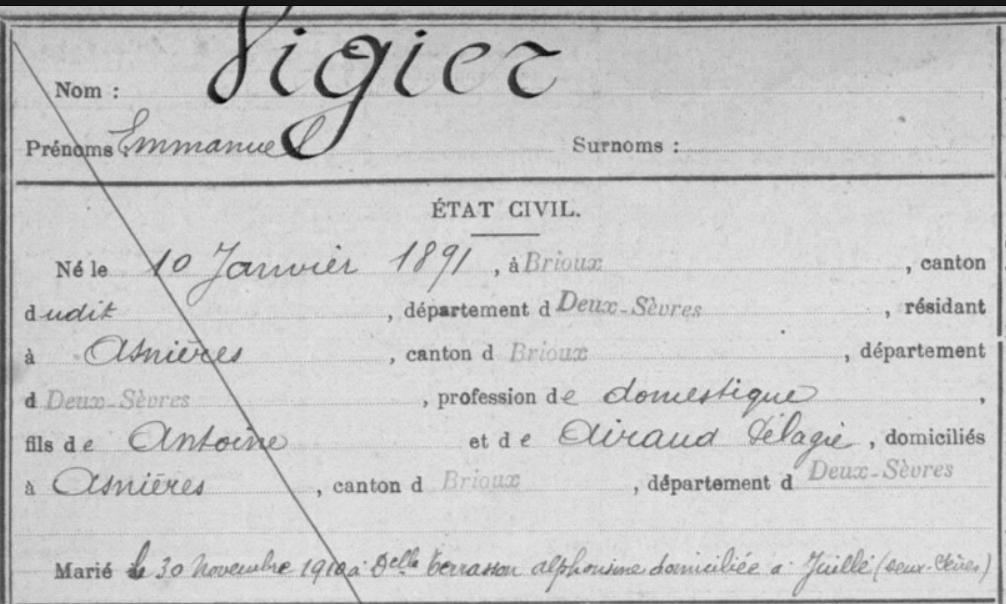 Nom : Vigier
Prénoms : Emmanuel Surnoms :
ÉTAT CIVIL.
Né le 10 Janvier 1891, à Brioux, canton
dudit, département d Deux-Sèvres, résidant
à Asnières, canton d Brioux, département
d Deux-Sèvres, profession de domestique,
fils de Antoine et de Airaud Pélagie, domiciliés
à Asnières, canton d Brioux, département d Deux-Sèvres
Marié le 30 Novembre 1910 à Delle alphonsine domiciliée à Juillé (Deux-Sèvres)